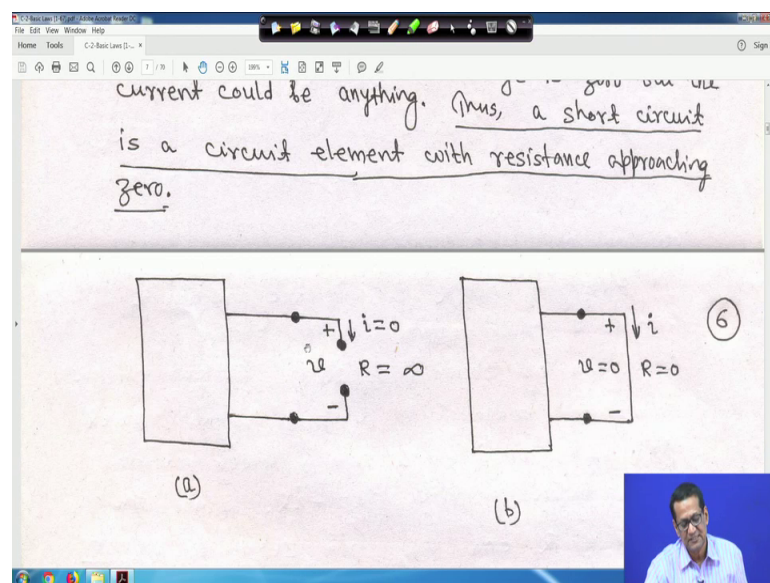 C-2-Basic Laws [1-67].pdf - Adobe Acrobat Reader DC
File Edit View Window Help
Home Tools C-2-Basic Laws [1-... × Sign
7 / 70
current could be anything. but the
Thus, a short circuit
is a circuit element with resistance approaching
zero.
+ i=0
v R = ∞
-
(a)
+ i
v=0 R=0
-
(b)
6